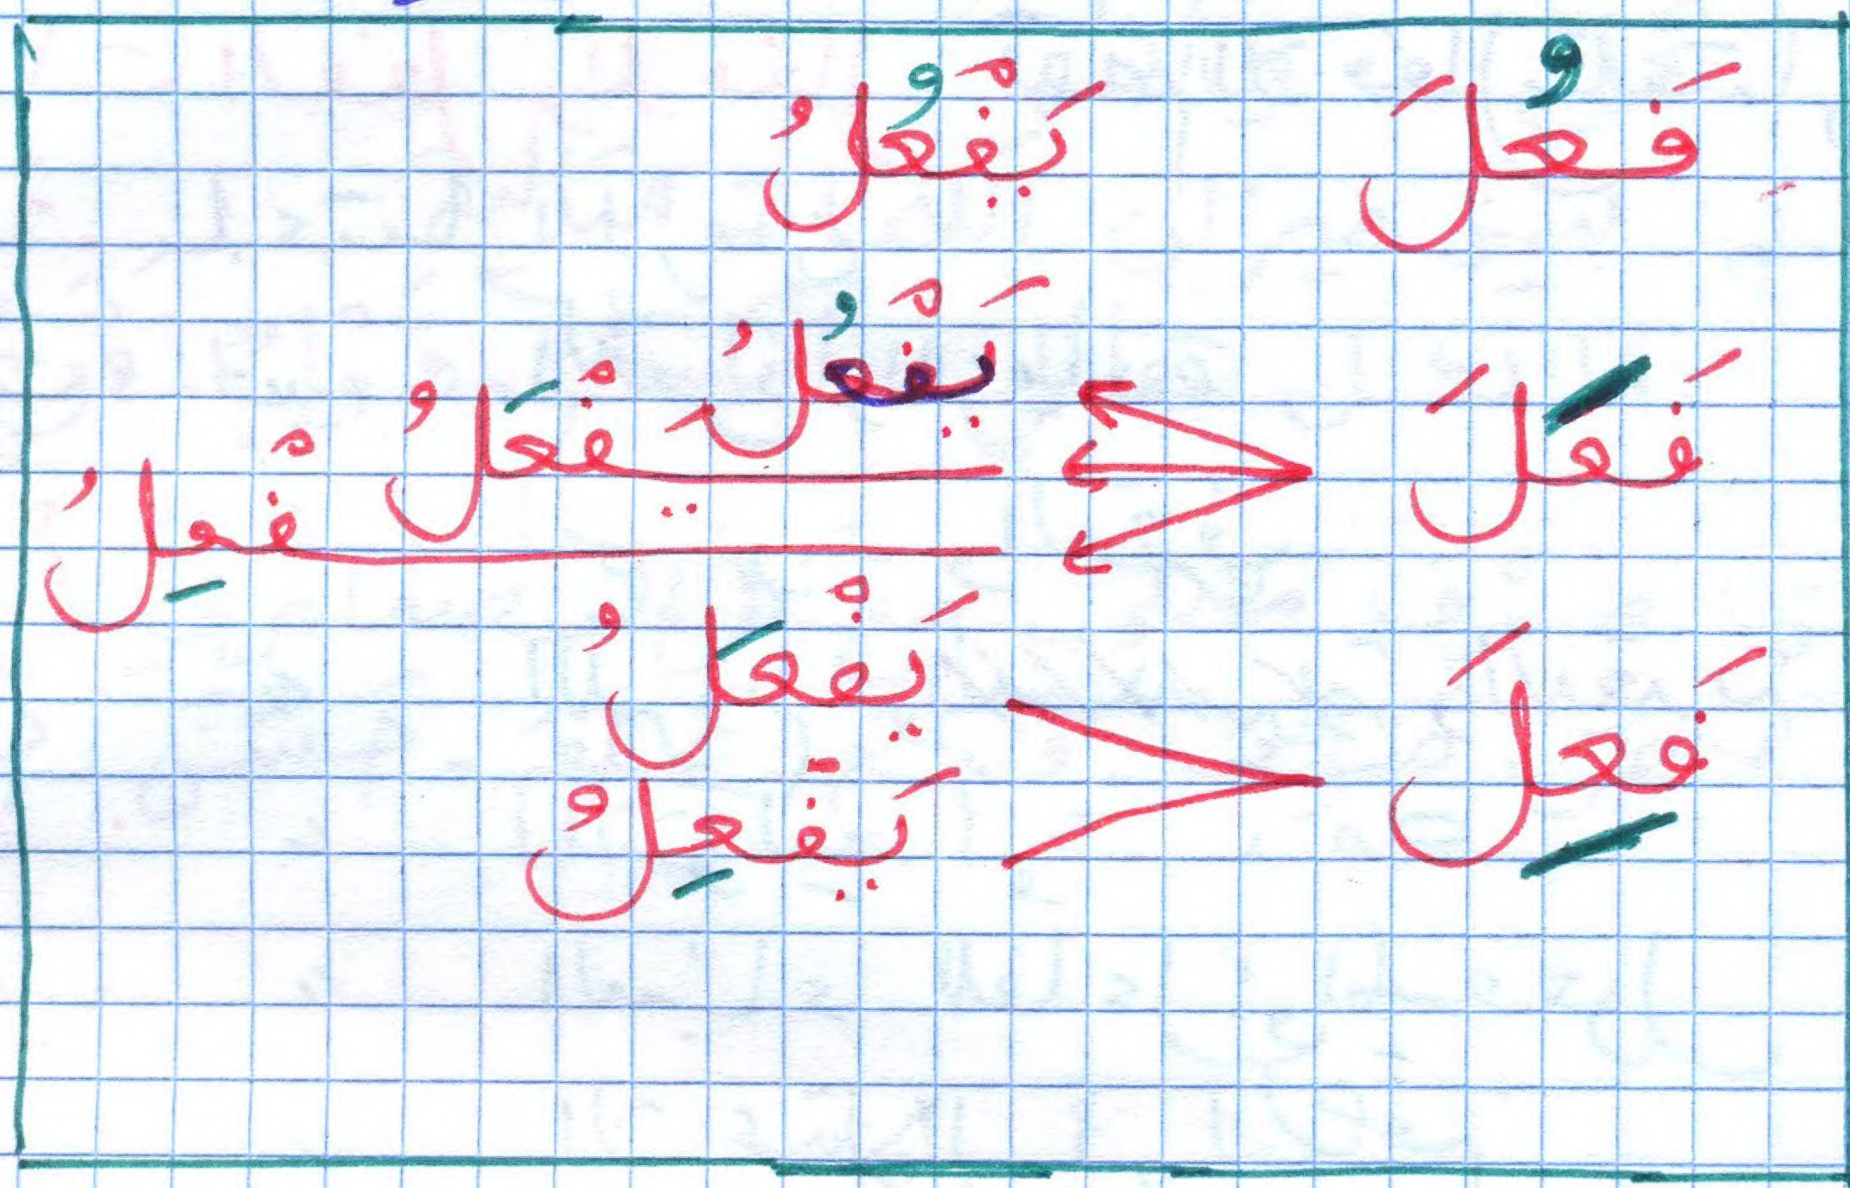 فَعُلَ يَفْعُلُ
فَعَلَ يَفْعُلُ
يَفْعَلُ
يفْعِلُ
فَعِلَ يَفْعَلُ
يَفْعِلُ